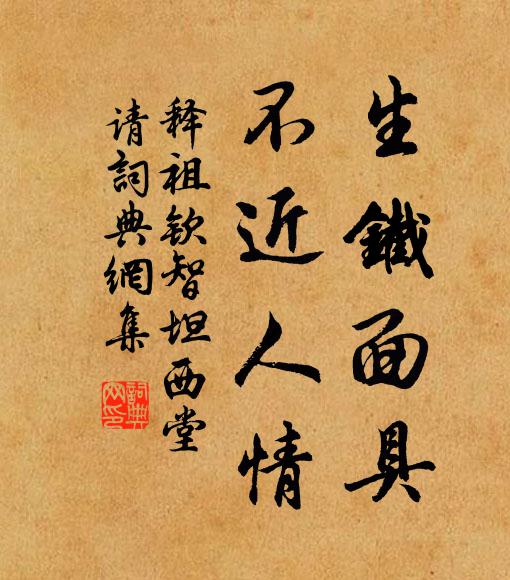 生鐵面具
不近人情
释祖钦智坦西堂
请詞典網集
詞典
网印